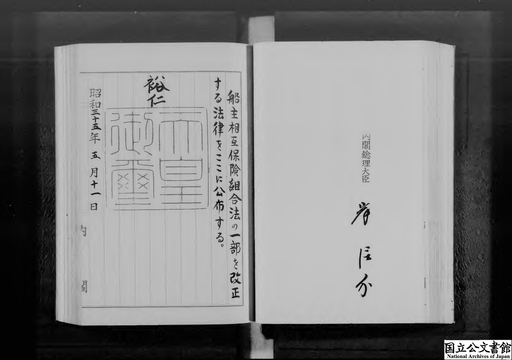 船主相互保険組合法の一部を改正
する法律をここに公布する。
裕仁
天皇御璽
昭和三十五年五月十一日
内閣
内閣総理大臣
岸信介
国立公文書館
National Archives of Japan